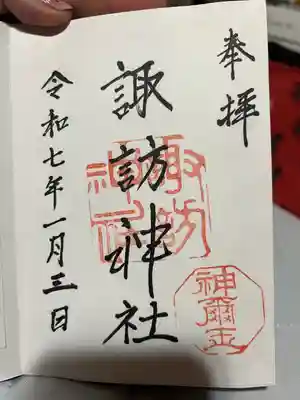 奉拝
諏訪神社
令和七年一月三日
諏訪神社
神爾玉